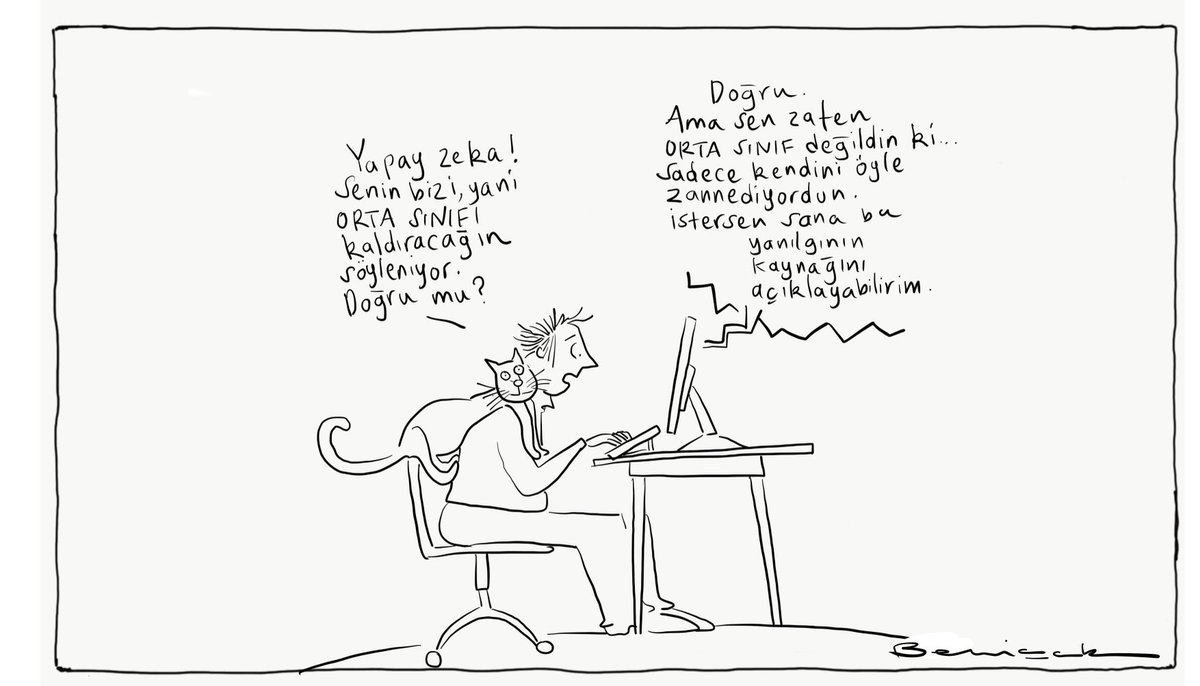 Yapay zeka!
Senin bizi, yani
ORTA SINIFI
kaldıracağın
söyleniyor.
Doğru mu?
Doğru.
Ama sen zaten
ORTA SINIF değildin ki...
sadece kendini öyle
zannediyordun.
istersen sana bu
yanılgının
kaynağını
açıklayabilirim.